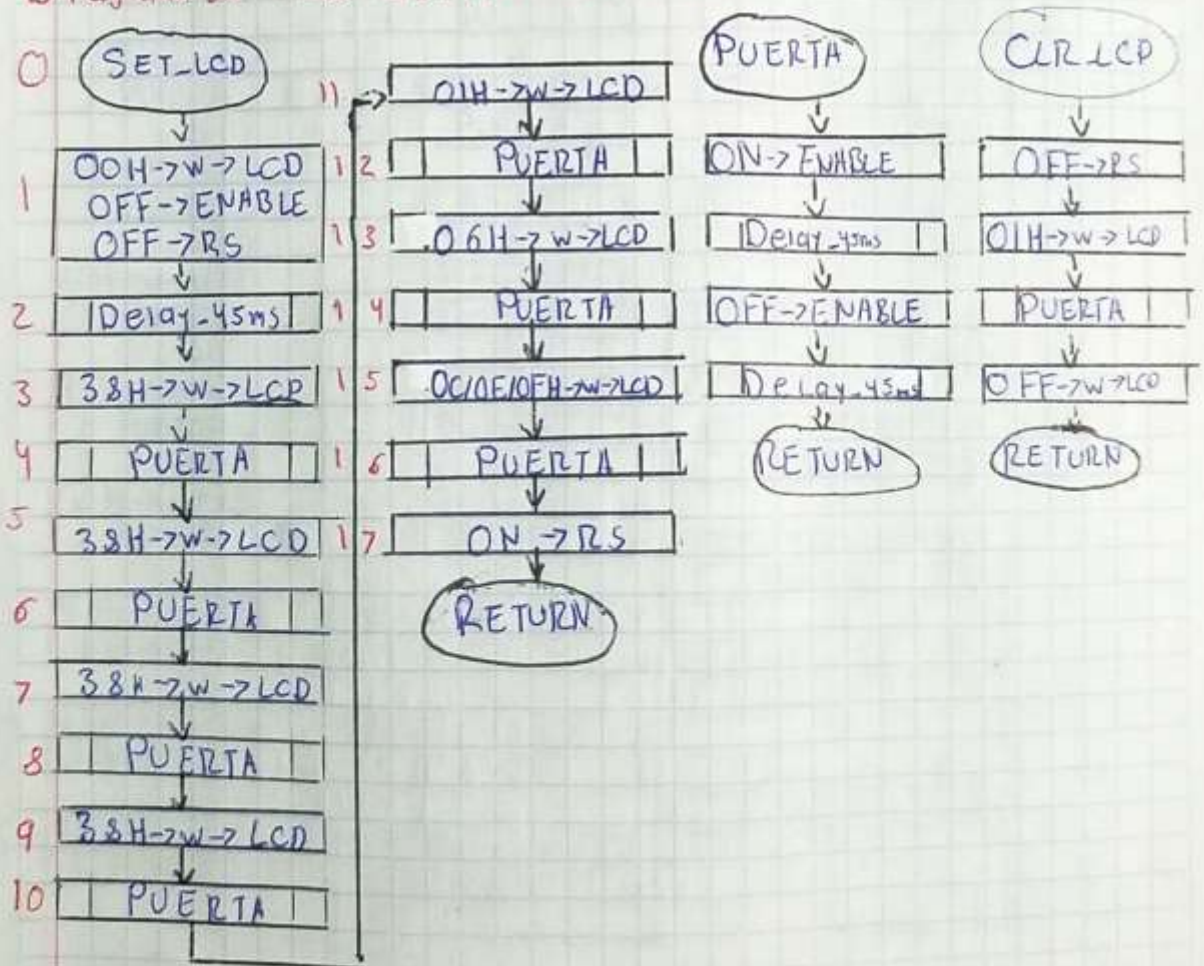 0 SET_LCD
1 00H->W->LCD
OFF->ENABLE
OFF->RS
2 Delay-45ms
3 38H->W->LCD
4 PUERTA
5 38H->W->LCD
6 PUERTA
7 38H->W->LCD
8 PUERTA
9 38H->W->LCD
10 PUERTA
11 01H->W->LCD
12 PUERTA
13 .06H->W->LCD
14 PUERTA
15 0C/0E/0FH->W->LCD
16 PUERTA
17 ON->RS
RETURN
PUERTA
ON->ENABLE
Delay-45ms
OFF->ENABLE
Delay-45ms
RETURN
CLR_LCD
OFF->RS
01H->W->LCD
PUERTA
OFF->W->LCD
RETURN